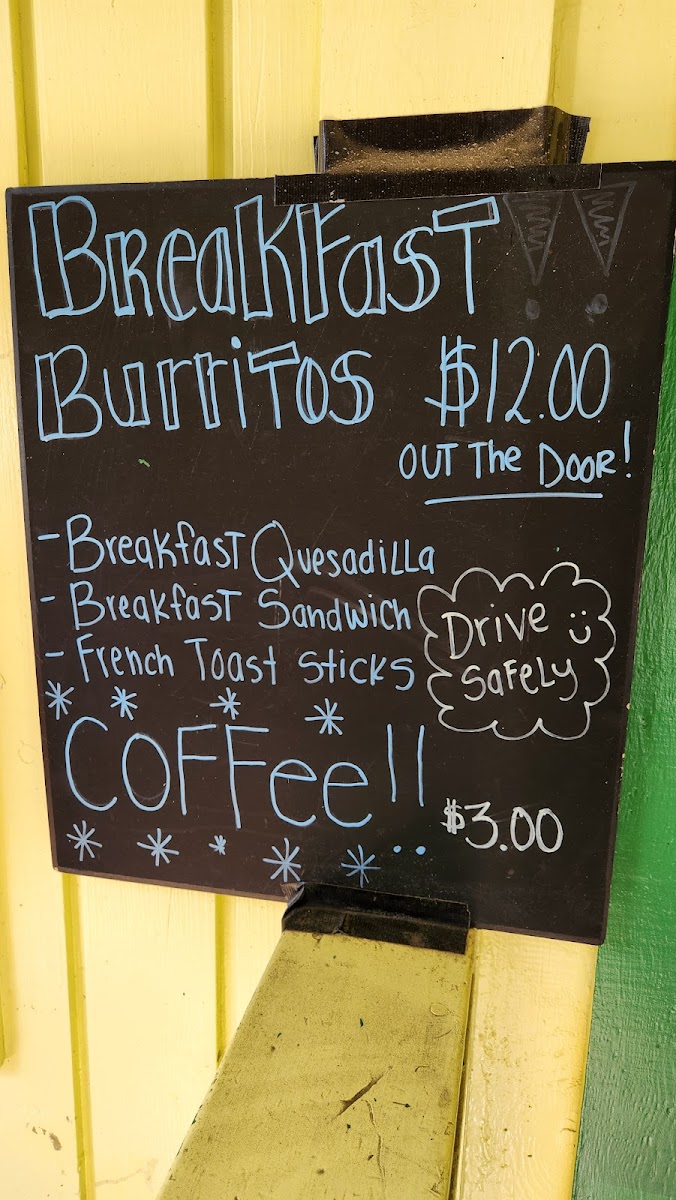 Breakfast!!
Burritos $12.00
OUT The DOOR!
- Breakfast Quesadilla
- Breakfast Sandwich
- French Toast Sticks
Drive
Safely
Coffee!!
$3.00